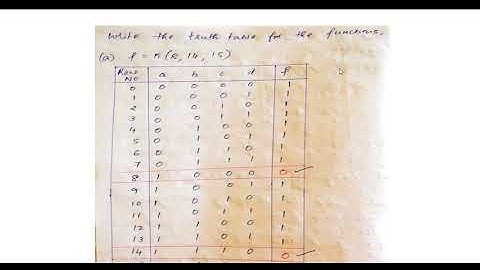 Write the truth table for the functions.
(a) f = π(8, 14, 15)
Row No a b c d f
0 0 0 0 0 1
1 0 0 0 1 1
2 0 0 1 0 1
3 0 0 1 1 1
4 0 1 0 0 1
5 0 1 0 1 1
6 0 1 1 0 1
7 0 1 1 1 1
8 1 0 0 0 0
9 1 0 0 1 1
10 1 0 1 0 1
11 1 0 1 1 1
12 1 1 0 0 1
13 1 1 0 1 1
14 1 1 1 0 0